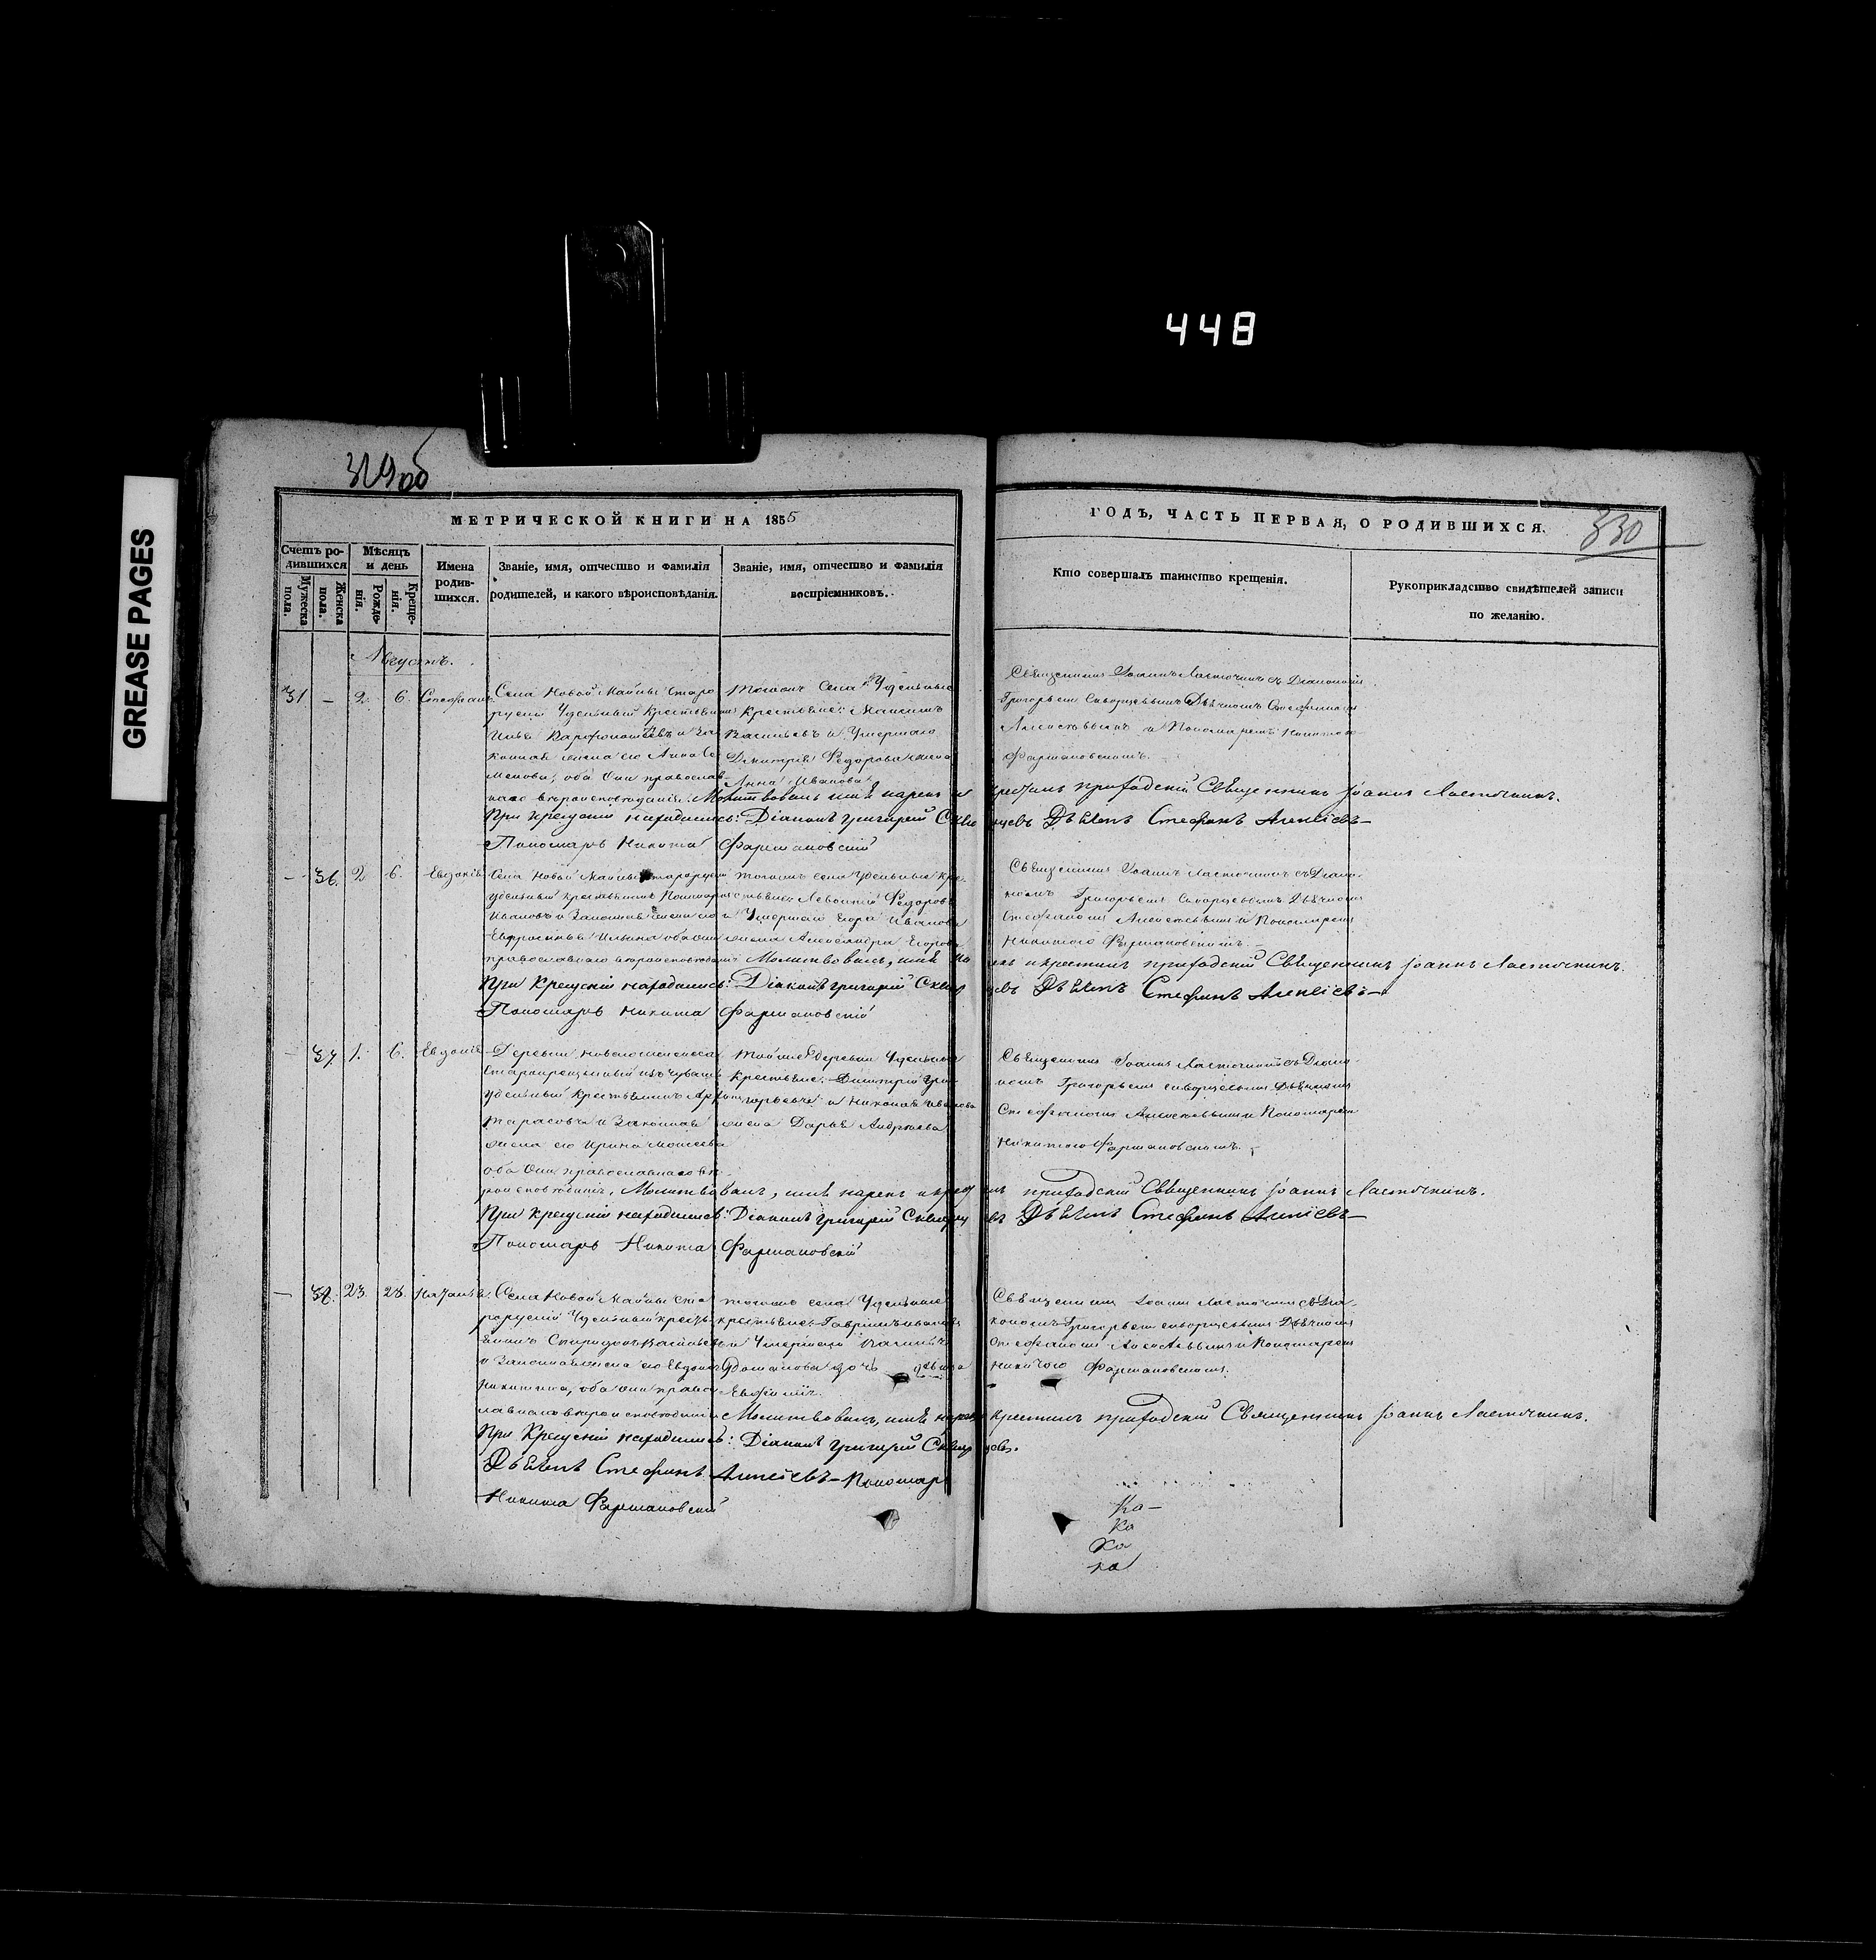 448
GREASE PAGES
329об
330
МЕТРИЧЕСКОЙ КНИГИ НА 1855
ГОДЪ, ЧАСТЬ ПЕРВАЯ, О РОДИВШИХСЯ.
Счетъ ро-
дившихся
Мужеска пола.
Женска пола.
Мѣсяцъ
и день
Рожде-
нія.
Креще-
нія.
Имена
родив-
шихся.
Званіе, имя, отчество и фамилія
родителей, и какого вѣроисповѣданія.
Званіе, имя, отчество и фамилія
воспріемниковъ.
Кто совершалъ таинство крещенія.
Рукоприкладство свидѣтелей записи
по желанію.
Августъ.
31 – 2. 6. Стефанъ
Села Новой Майны Старо
рускій Удельный Крестьянинъ
Илья Варфоломѣевъ и За
конная жена его Анна Се
менова, оба они православ
наго вѣроисповѣданія.
Тогожъ Села Удельные
крестьяне: Максимъ
Васильевъ и Умершаго
Дмитрія Федорова жена
Анна Иванова
Священникъ Іоаннъ Ласточкинъ съ Діакономъ
Григорьемъ Скворцевымъ Дьячкомъ Стефаномъ
Алексѣевымъ и Пономаремъ Никитою
Фармаковскимъ.
Молитвовалъ имя нарекъ и крестилъ приходскій Священникъ Іоаннъ Ласточкинъ.
При крещеніи находились: Діаконъ Григорій Скворцевъ Дьячекъ Стефанъ Алексіевъ–
Пономарь Никита Фармаковскій
– 36. 2 6. Евдокія
Села Новой Майны Старорускій
удельный крестьянинъ
Ивановъ и Законная жена его
Евфросинья Ильина оба они
православнаго вѣроисповѣданія
тогожъ села удельные кре
стьяне Леонтий Федоровъ
и Умершаго Егора Иванова
жена Александра Егорова
Священникъ Іоаннъ Ласточкинъ съ Діако-
номъ Григорьемъ Скворцевымъ Дьячкомъ
Стефаномъ Алексѣевымъ и Пономаремъ
Никитою Фармаковскимъ.–
Молитвовалъ, имя нарекъ и крестилъ приходскій Священникъ Іоаннъ Ласточкинъ.
При крещеніи находились: Діаконъ Григорій Скворцевъ Дьячекъ Стефанъ Алексіевъ–
Пономарь Никита Фармаковскій
– 37. 1. 6. Евдокія
Деревни
Старокрещеный изъ чувашъ
удельный крестьянинъ
Тарасовъ и Законная
жена его Ирина Моисеева
оба они православнаго вѣ
роисповѣданія.
Той же деревни Удельные
крестьяне: Дмитрій Гри
горьевъ и Николая Иванова
жена Дарья Андреева
Священникъ Іоаннъ Ласточкинъ съ Діако-
номъ Григорьемъ Скворцевымъ Дьячкомъ
Стефаномъ Алексѣевымъ и Пономаремъ
Никитою Фармаковскимъ.–
Молитвовалъ, имя нарекъ и крестилъ приходскій Священникъ Іоаннъ Ласточкинъ.
При крещеніи находились: Діаконъ Григорій Скворцевъ Дьячекъ Стефанъ Алексіевъ–
Пономарь Никита Фармаковскій
– 38. 23. 28. Наталья
Села Новой Майны Ста
рорускій Удельный кресть
янинъ Спиридонъ Васильевъ
и Законная жена его Евдокія
Никитина, оба они правос
лавнаго вѣроисповѣданія
тогожъ села Удельные
крестьяне: Гаврила Ивановъ
и Умершаго
дочь девица
Евфимія.
Священникъ Іоаннъ Ласточкинъ съ Діа-
кономъ Григорьемъ Скворцевымъ Дьячкомъ
Стефаномъ Алексѣевымъ и Пономаремъ
Никитою Фармаковскимъ.
Молитвовалъ, имя нарекъ крестилъ приходскій Священникъ Іоаннъ Ласточкинъ.
При Крещеніи находились: Діаконъ Григорій Скворцевъ.
Дьячекъ Стефанъ Алексіевъ–Пономарь
Никита Фармаковскій
Ка–
Ка
Ка
ка